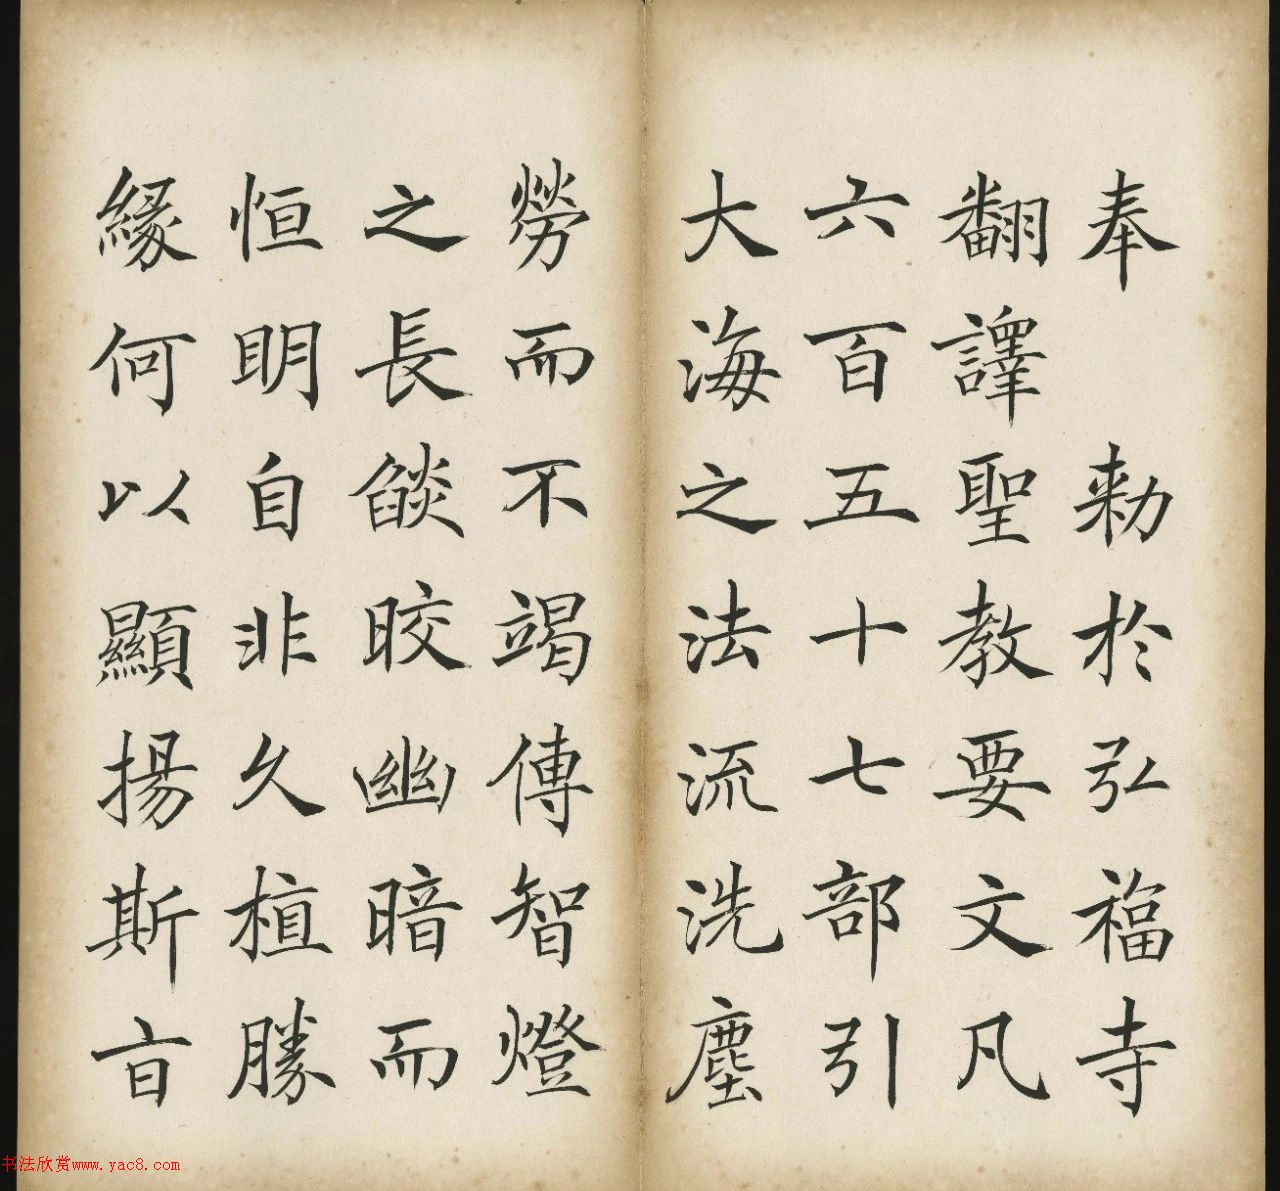 奉 勑於弘福寺
翻譯聖教要文凡
六百五十七部引
大海之法流洗塵
勞而不竭傳智燈
之長燄皎幽暗而
恒明自非久植勝
緣何以顯揚斯旨
书法欣赏www.yac8.com